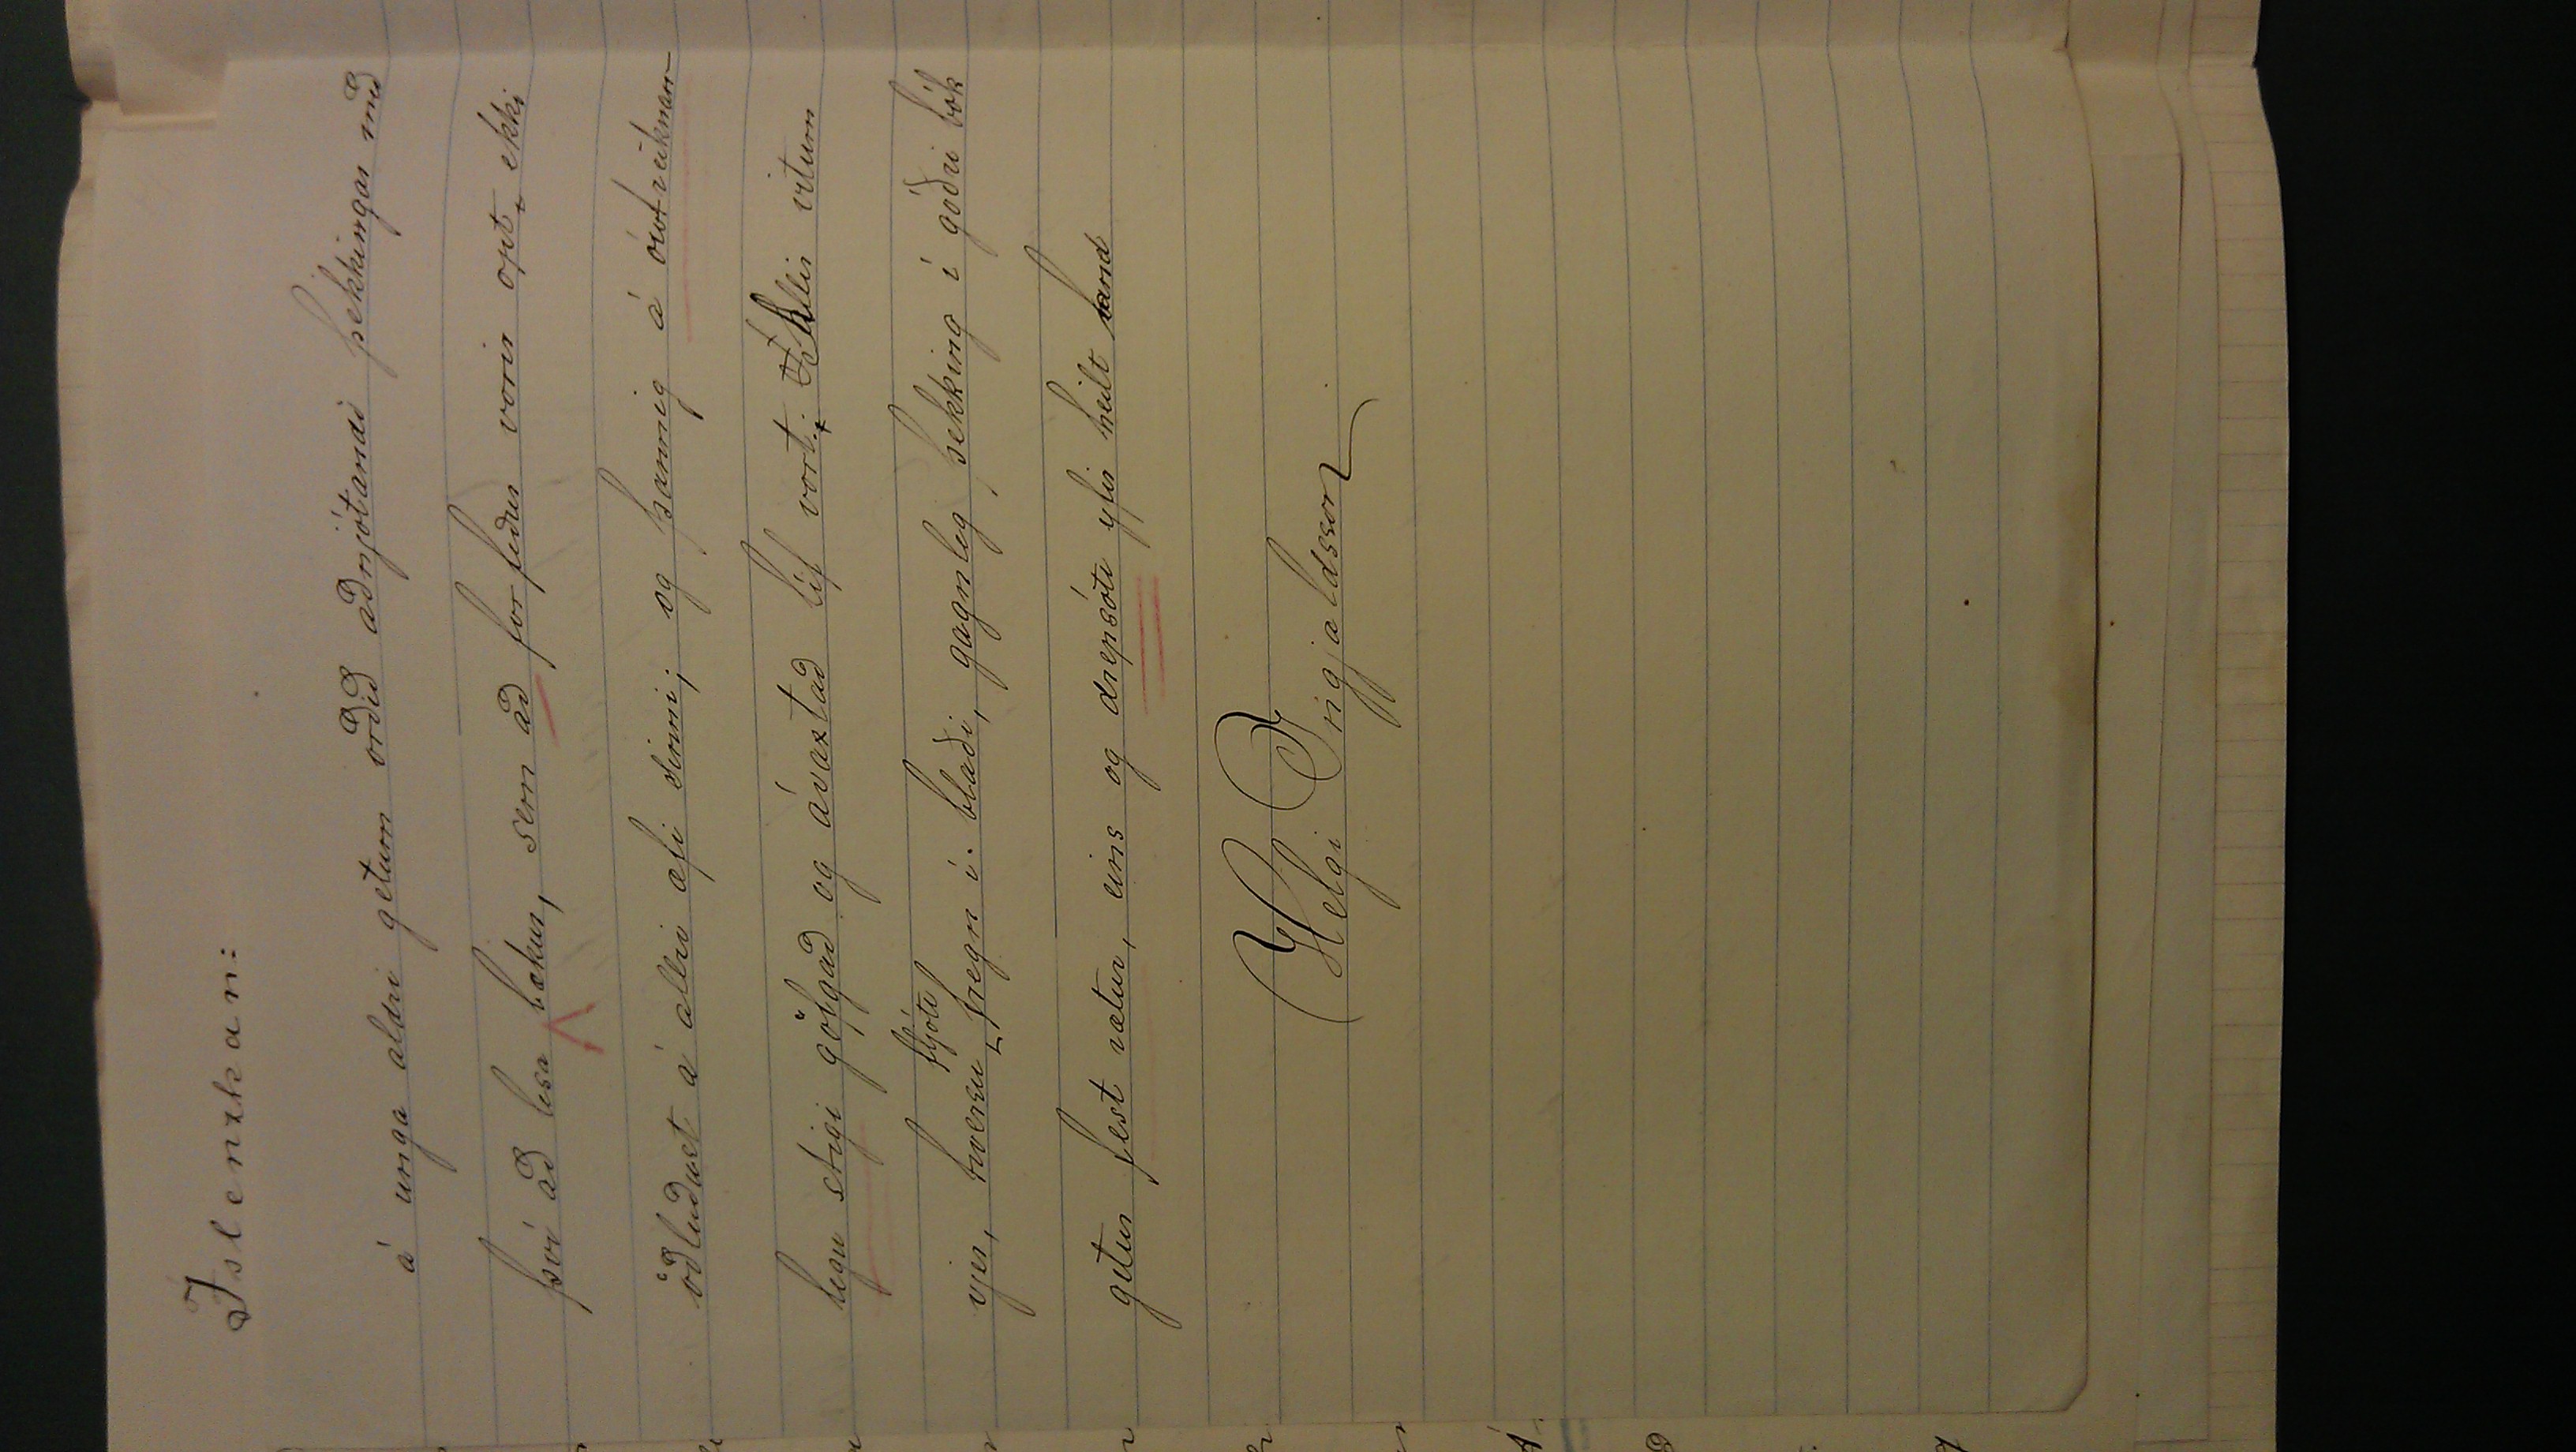 Íslenzkan:
á unga aldri getum orðið aðnjótandi þekkingar með
því að lesa bækur, sem að forfeður vorir opt ekki
öðluðust á allri æfi sinni; og þannig á
legu stigi göfgað og ávaxtað líf vort. Allir vitum
fljótt
vjer, hversu fregn í blaði, gagnleg þekking í góðri bók
getur fest rætur, eins og drepsótt yfir heilt land
Helgi Ingjaldsson